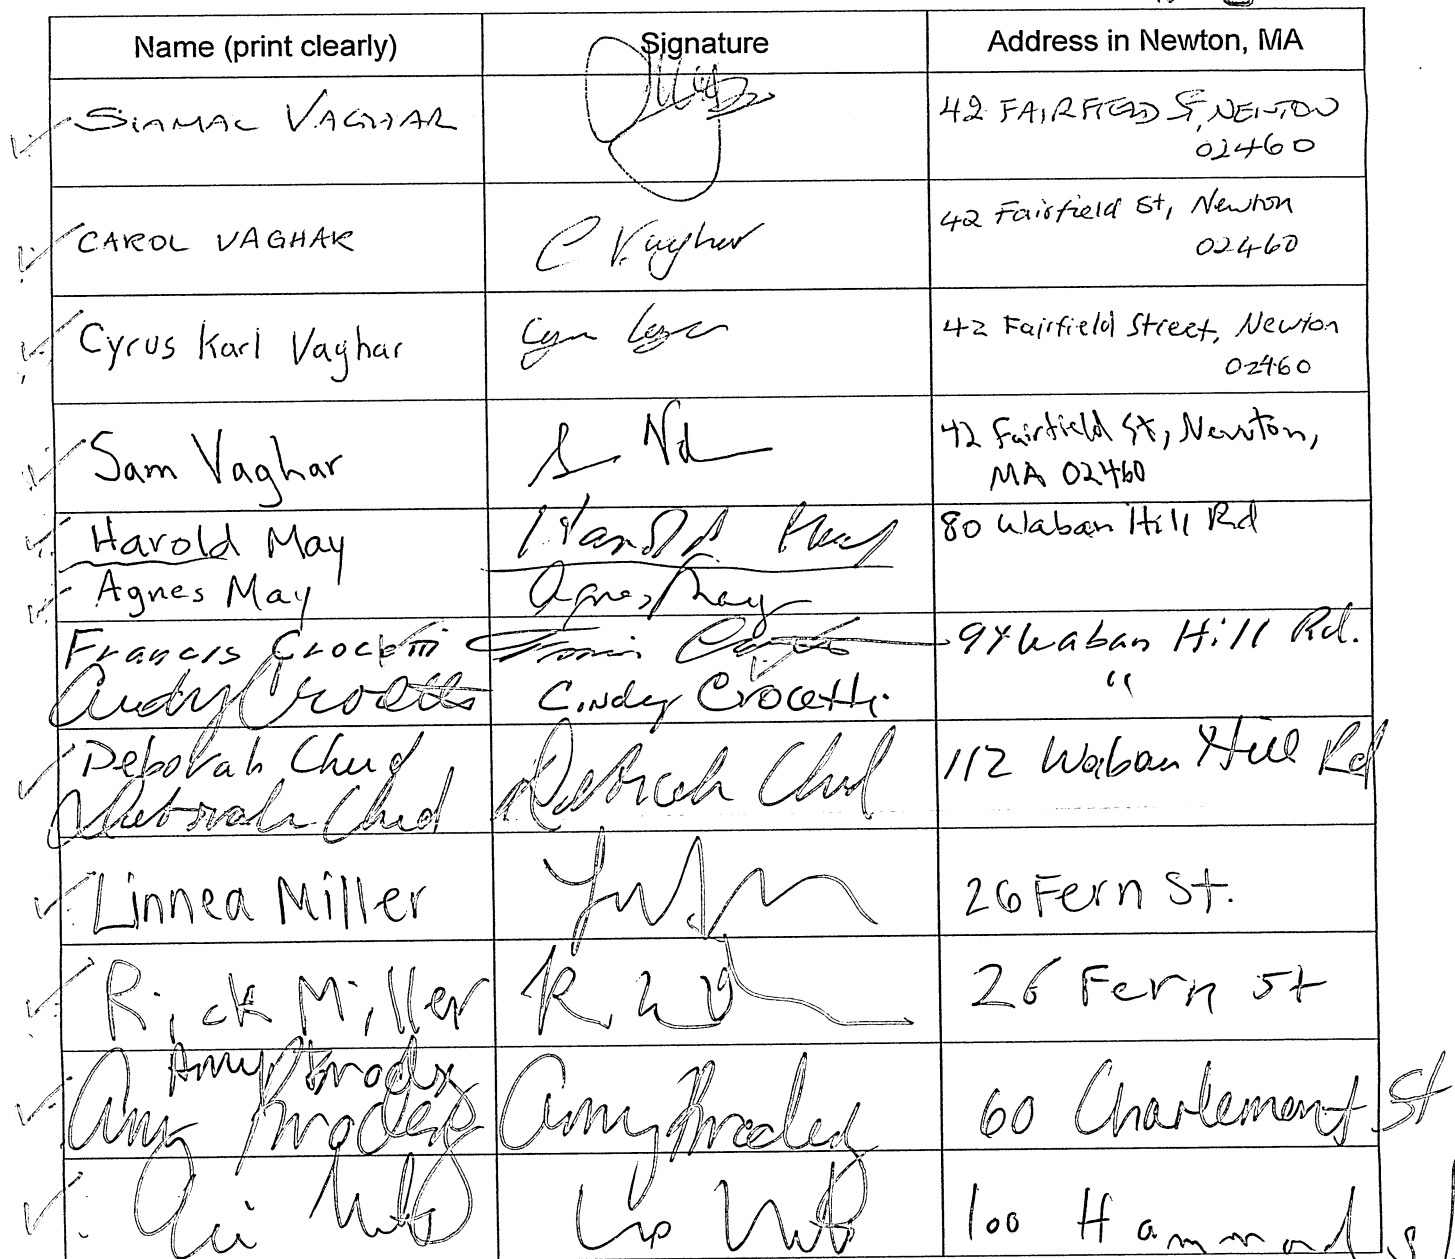 Name (print clearly) Signature Address in Newton, MA
SIAMAC VAGHAR 42 FAIRFIELD ST, NEWTON
02460
CAROL VAGHAR C Vaghar 42 Fairfield St, Newton
02460
Cyrus Karl Vaghar 42 Fairfield Street, Newton
02460
Sam Vaghar 42 Fairfield St, Newton,
MA 02460
Harold May Harold May 80 Waban Hill Rd
Agnes May Agnes May
Francis Crocetti Francis 94 Waban Hill Rd.
Cindy Crocetti Cindy Crocetti "
Deborah Chud Deborah Chud 112 Waban Hill Rd
Deborah Chud
Linnea Miller 26 Fern St.
Rick Miller 26 Fern St
Amy Brodey
Amy Brodey Amy Brodey 60 Charlemont St
100 Hammond